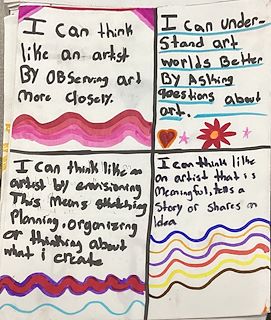 I can think
like an artist
BY OBserving art
More closely.
I can under-
Stand art
worlds Better
By Asking
questions about
art.
I can think like an
artist by envisioning
This Means sketching
Planning, organizing
or thinking about
what i create
I can think like
an artist that is
Meaningful, tells a
Story or shares an
Idea